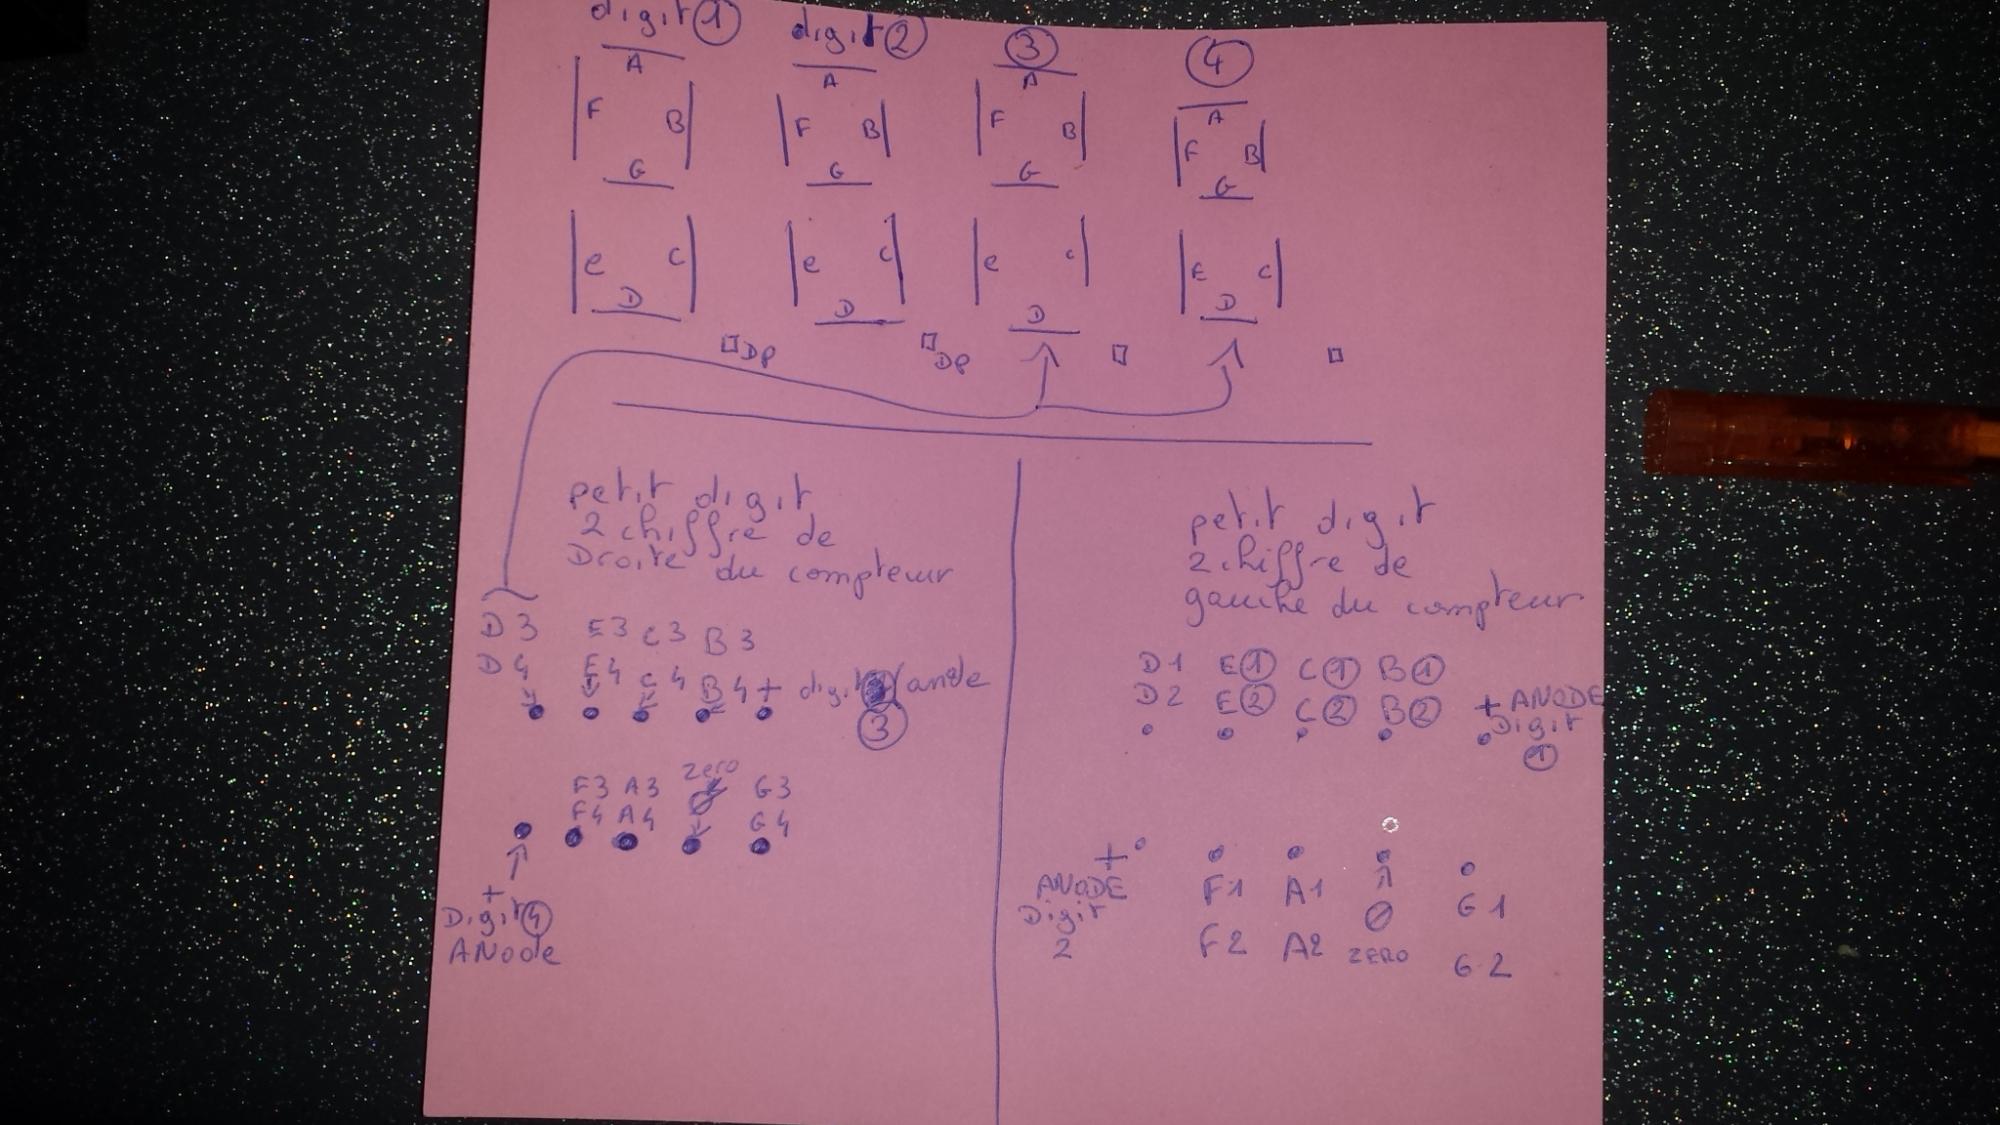 digit ① digit ② ③ ④
A A A A
F B F B F B F B
G G G G
e C e C e C E C
D D D D
DP DP
petit digit
2 chiffre de
Droite du compteur
D3 E3 C3 B3
D4 E4 C4 B4 + digit anode
③
F3 A3 zero G3
F4 A4 G4
+
Digit ④
ANode
petit digit
2 chiffre de
gauche du compteur
D1 E① C① B①
D2 E② C② B② + ANODE
Digit
①
+
ANODE F1 A1 G1
Digit Ø
2 F2 A2 ZERO G2